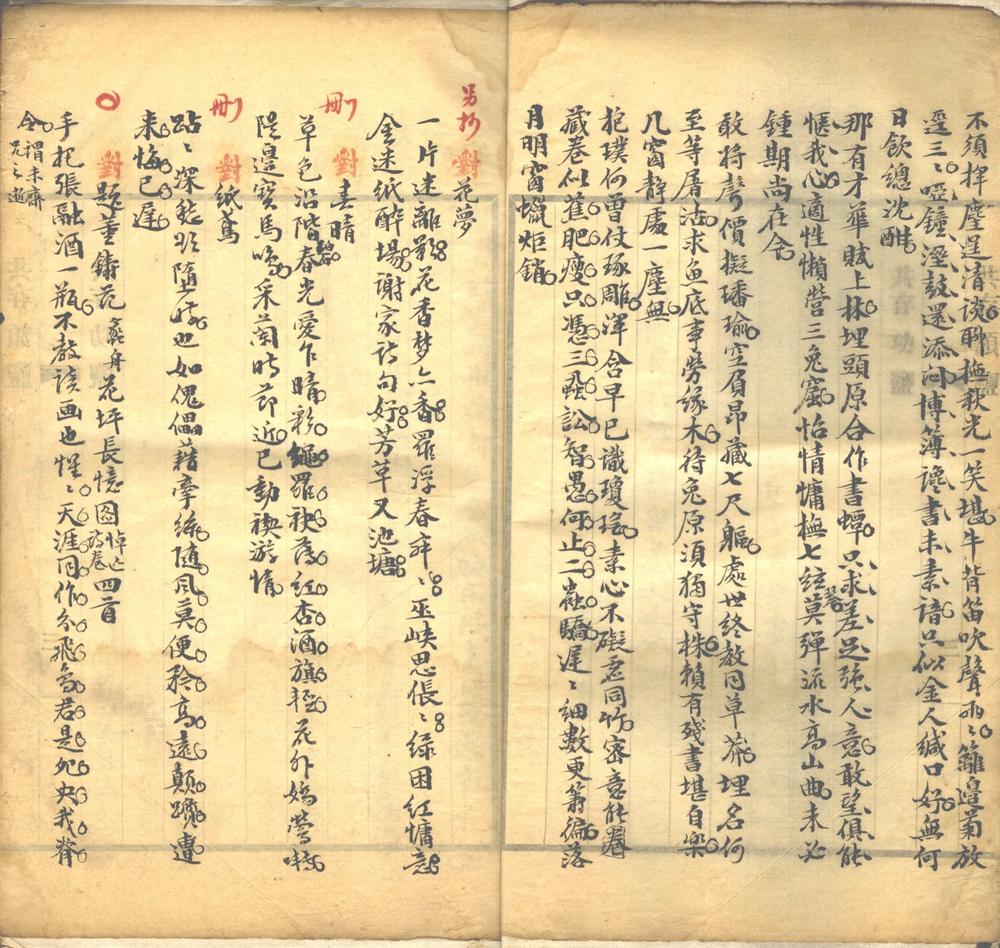 不須揮麈逞清談聊撫秋光一笑堪牛背笛吹聲兩〻籬邊菊放
逕三〻啞鐘溼鼓還添悶博簿讒書未素諳只似金人緘口好無何
日飲總沈酣
那有才華賦上林埋頭原合作書蟫只求差足強人意敢望俱能
愜我心適性懶營三兔窟怡情慵撫七絃琴莫彈流水高山曲未必
鍾期尚在今
敢將聲價擬璠瑜空負昂藏七尺軀處世終教同草莽埋名何
至等屠沽求魚底事勞緣木待兔原須獨守株賴有殘書堪自樂
几窗静處一塵無
抱璞何曾仗琢雕渾含早已識瓊瑤素心不礙志同竹密意能卷
藏卷似蕉肥瘦只憑三蝨訟智愚何止二蟲驕遲〻細數更籌徧落
月明窗蠟炬銷
另抄 對 花夢
一片迷離影花香梦亦香羅浮春舜〻巫峽思倀〻緑困紅慵意
金迷紙醉場謝家詩句好芳草又池塘
刪 對 春晴
草色沿階春光愛乍晴彩繩羅袂薄紅杏酒旗輕花外嬌鶯囀
隄邊寶馬鳴采蘭时節近已動禊游情
刪 對 紙鳶
跕〻深愁 隨 也如傀儡藉牽絲随風莫便矜高遠顛躓遭
来悔已遲
對 題董鑄范 舟花坪長憶图 悼亡 卷 四首
手把張融酒一瓶不教读画也惺〻天涯同作分飛鳥君是死央我脊
令 謂未齋 兄之逝